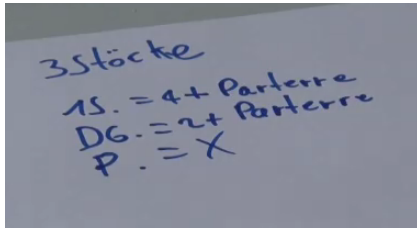 3 Stöcke
1S. = 4 + Parterre
DG. = 2 + Parterre
P. = X